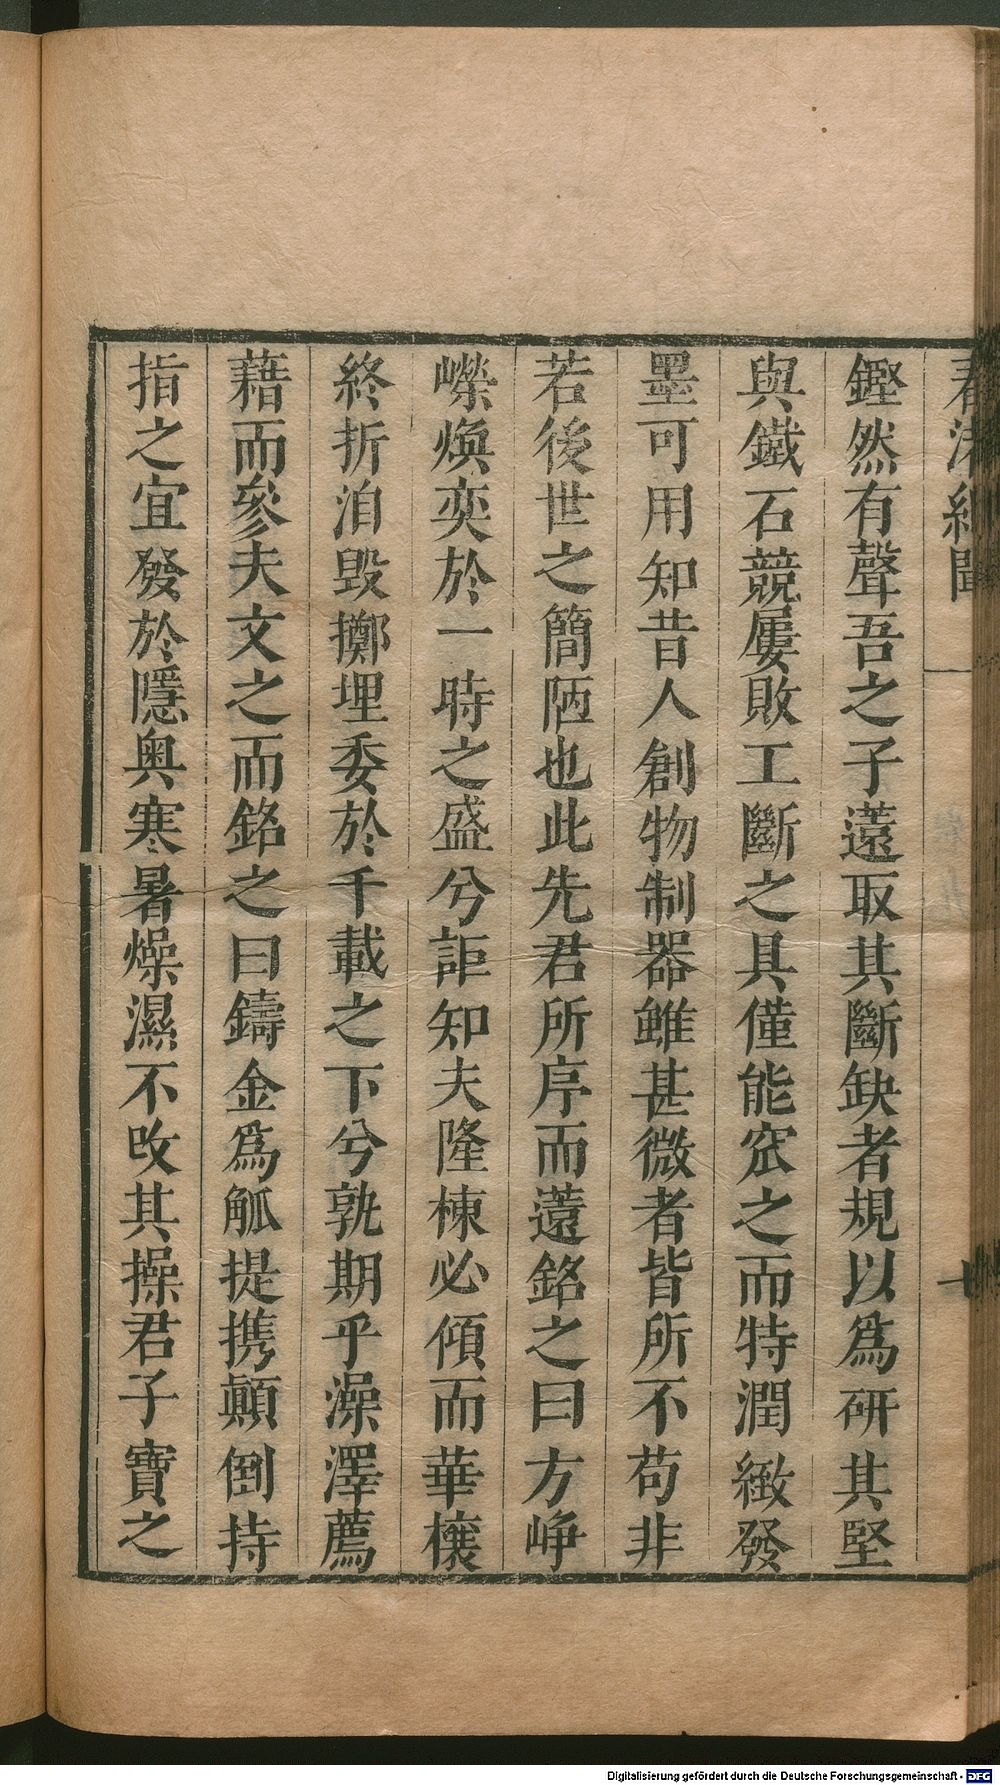 鏗然有聲吾之子薳取其斷缺者規以為研其堅
與鐵石競屢敗工斲之具僅能窊之而特潤緻發
墨可用知昔人創物制器雖甚微者皆所不苟非
若後世之簡陋也此先君所序而薳銘之曰方崢
嶸煥奕於一時之盛兮詎知夫隆棟必傾而華榱
終折洎毀擲埋委於千載之下兮孰期乎澡澤薦
藉而參夫文之而銘之曰鑄金爲觚提携顛倒持
指之宜發於隱奧寒暑燥濕不改其操君子寶之
Digitalisierung gefördert durch die Deutsche Forschungsgemeinschaft - DFG